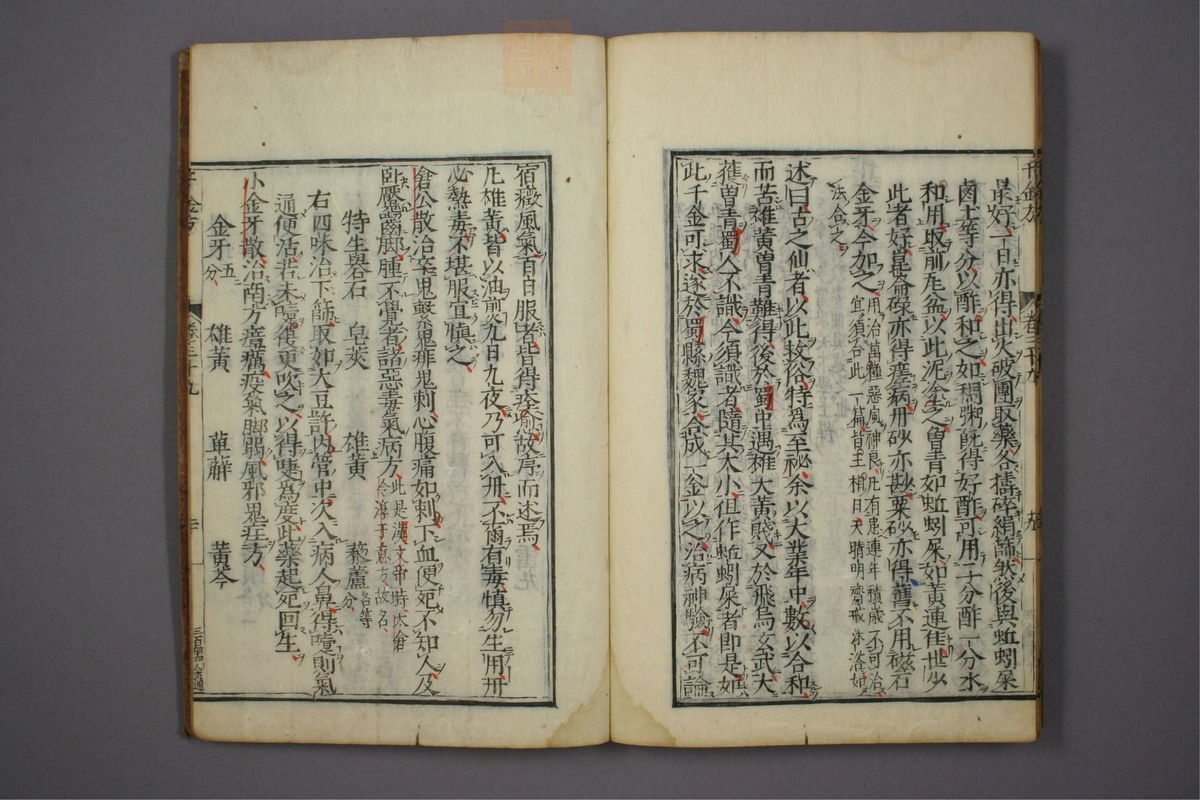 最好一日亦得出火破團取藥各擣碎絹篩然後與蚯蚓屎
鹵土等分以酢和之如稠粥既得好酢可用二分酢一分水
和用取前瓦盆以此泥塗之曾青如蚯蚓屎如黃連佳世少
此者好崑崙碌亦得瘧病丹砂亦甚粟砂亦得舊不用磁石
金牙今加之用治萬種惡風神良凡有患連年積歲不可治
宜須合此一篇皆王相日天晴明齋戒沐浴如
法合之
述曰古之仙者以此救俗特為至祕余以大業年中數以合和
而苦雄黃曾青難得後於蜀中遇雄大黃賤又於飛烏玄武大
獲曾青蜀人不識今須識者隨其大小但作蚯蚓屎者即是如
此千金可求遂於蜀縣魏家合成一釜以之治病神驗不可論
宿癥風氣百日服者皆得痊愈故序而述焉
凡雄黃皆以油煎九日九夜乃可入丹不爾有毒慎勿生用丹
必熱毒不堪服宜慎之
倉公散治卒鬼擊鬼痱鬼刺心腹痛如刺下血便死不知人及
臥魘齧脚腫不覺者諸惡毒氣病方此是漢文帝時太倉
令淳于意方故名
特生礜石 皂莢 雄黃 藜蘆各等分
右四味治下篩取如大豆許內管中吹入病人鼻得嚏則氣
通便活若未嚏復更吹之以得嚏為度此藥起死回生
小金牙散治南方瘴癘疫氣脚弱風邪鬼疰方
金牙五分 雄黃 萆薢 黃芩